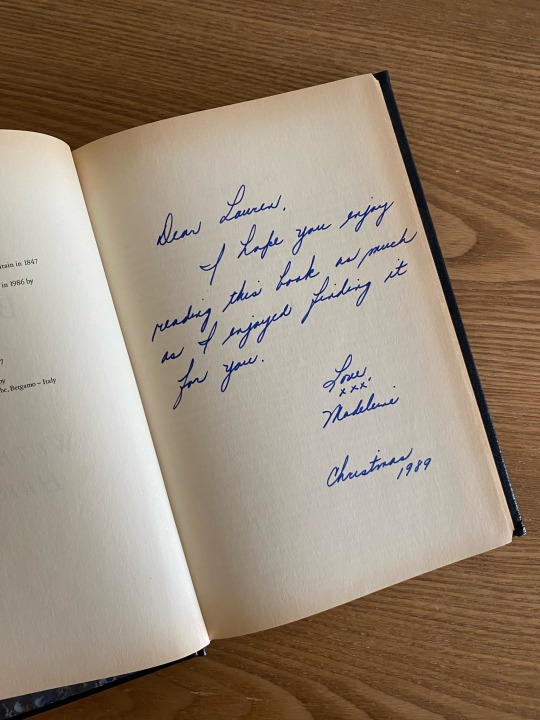 tain in 1847
in 1986 by
7
by
he, Bergamo – Italy
Dear Lauren,
I hope you enjoy
reading this book as much
as I enjoyed finding it
for you.
Love
xxx,
Madeleine
Christmas
1989